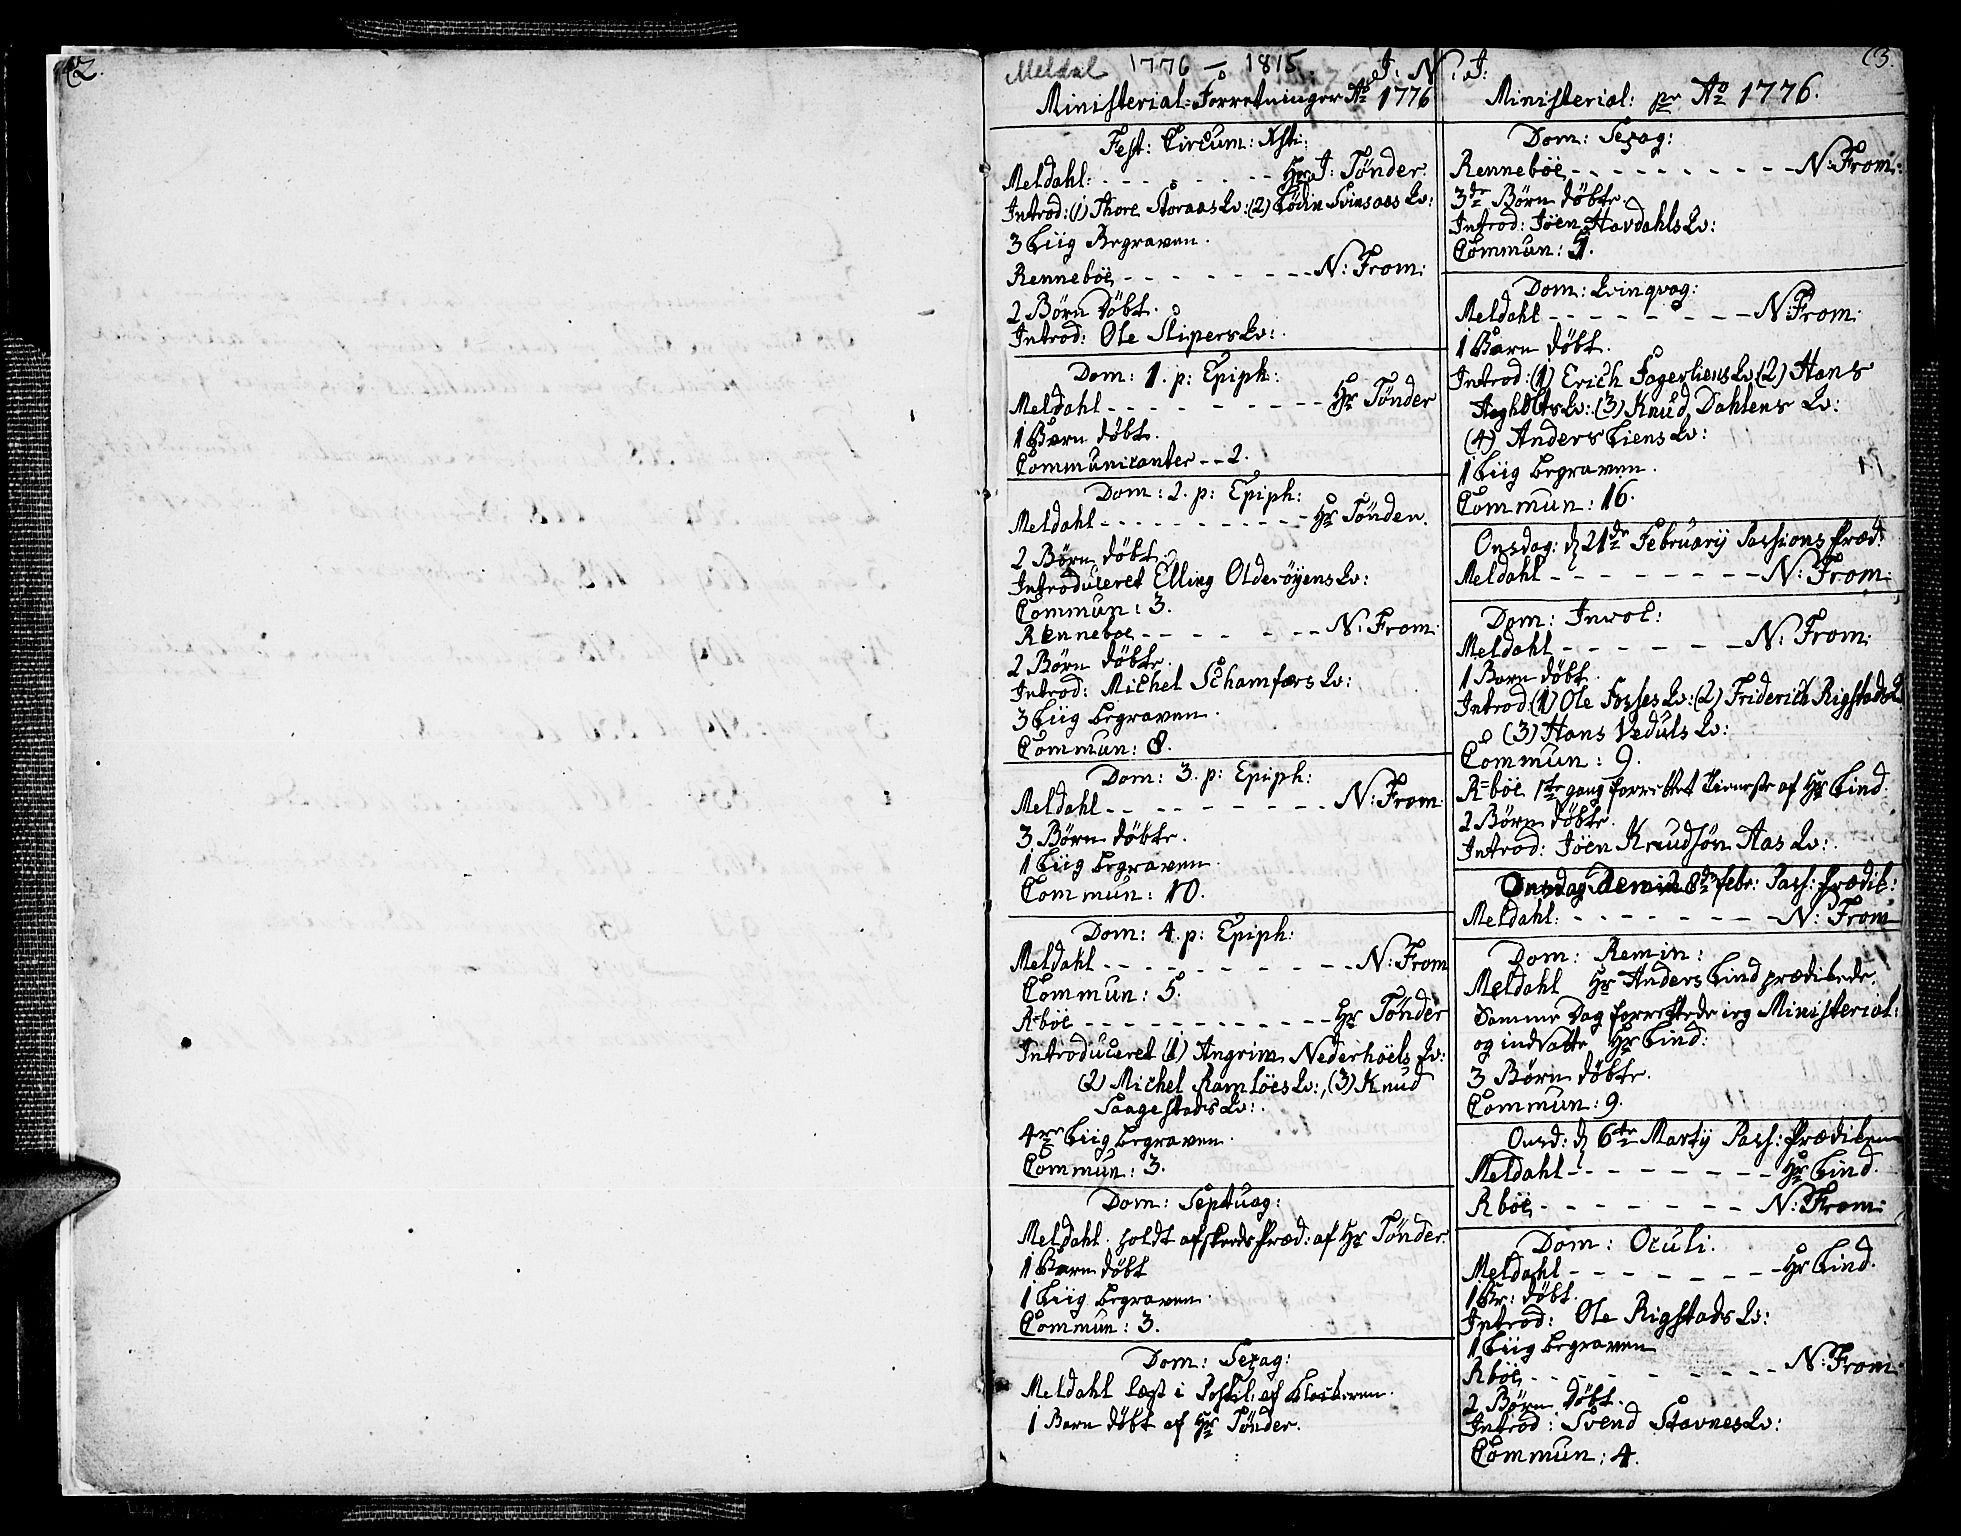 2.
Meldal 1776 – 1815. J: N: J:
3.
Ministerial-Forretninger Ao 1776
Fest: Circum: Xsti:
Meldahl: - - - - - - - Hr J: Tönder.
Introd: (1) Thore Storaas Qv: (2) Lödin Svinsaas Qv:
3 Liig Begraven.
Renneböe - - - - - - - N: From:
2 Börn döbt.
Introd: Ole Slipers Qv:
Dom: 1. p: Epiph:
Meldahl - - - - - - - - - Hr Tönder
1 Barn döbt.
Communicanter - - 2.
Dom: 2. p: Epiph:
Meldahl - - - - - - - - - Hr Tönder.
2 Börn döbt.
Introduceret Elling Olderöyens Qv:
Commun: 3.
Renneboe - - - - - - - N: From:
2 Börn döbte.
Introd: Michel Schamfærs Qv:
3 Liig begraven.
Commun: 8.
Dom: 3. p: Epiph:
Meldahl - - - - - - - - - N: From
3 Börn döbte.
1 Liig begraven.
Commun: 10.
Dom: 4. p: Epiph:
Meldahl - - - - - - - - - - N: From
Commun: 5.
R-böe - - - - - - - - - - - Hr Tönder
Introduceret (1) Angrim Nederhöels Qv:
(2) Michel Ramlöes Qv:, (3) Knud
Saagestads Qv:.
4re Liig begraven.
Commun: 3.
Dom: Septuag:
Meldahl. holdt afskeeds Præd: af Hr Tönder.
1 Barn döbt
1 Liig begraven.
Commun: 3.
Dom: Sexag:
Meldahl læst i Postil: af Klockeren.
1 Barn döbt af Hr Tönder.
Ministerial: pr Ao 1776.
Dom: Sexag:
Renneböe - - - - - - - - - N: From:
3de Börn döbte.
Introd: Jöen Havdahls Qv:
Commun: 5.
Dom: Qvinqvag:
Meldahl - - - - - - - - N: From:
1 Barn döbt.
Introd: (1) Erich Fagerliens Qv: (2) Hans
Qv: (3) Knud Dahlens Qv:
(4) Anders Liens Qv:
1 Liig begraven.
Commun: 16.
Onsdag: d 21de Februarij Passions Præd:
Meldahl - - - - - - - - N: From:
Dom: Invoc:
Meldahl - - - - - - - N: From:
1 Barn döbt.
Introd: (1) Ole Fosses Qv: (2) Friderich Rigstads Q
(3) Hans Veduls Qv:
Commun: 9.
R-böe 1te gang forrettet Tieneste af Hr Lind.
2 Börn döbte.
Introd: Jöen Knudsön Aas Qv:
Onsdag 28de Febr: Pass: Prædik:
Meldahl: - - - - - - - - N: From
Dom: Remin:
Meldahl Hr Anders Lind prædikede.
Samme Dag forrettede ieg Ministerial:
og indsatte Hr Lind:
3 Börn döbte.
Commun: 9.
Onsd: d 6te Martij Pass: Prædiken
Meldahl - - - - - - - - Hr Lind.
Rböe - - - - - - - - - N: From:
Dom: Oculi.
Meldahl - - - - - - - - Hr Lind.
1 Br: döbt.
Introd: Ole Rigstads Qv:
1 Liig begraven
Rböe - - - - - - - - - N: From:
2 Börn döbt.
Introd: Svend Stavnes Qv:
Commun: 4.